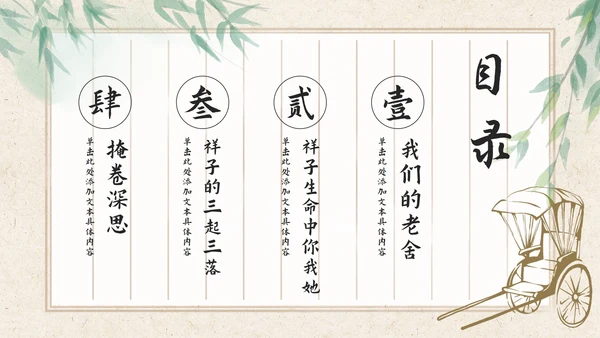 目录
壹
我们的老舍
单击此处添加文本具体内容
贰
祥子生命中你我她
单击此处添加文本具体内容
叁
祥子的三起三落
单击此处添加文本具体内容
肆
掩卷深思
单击此处添加文本具体内容